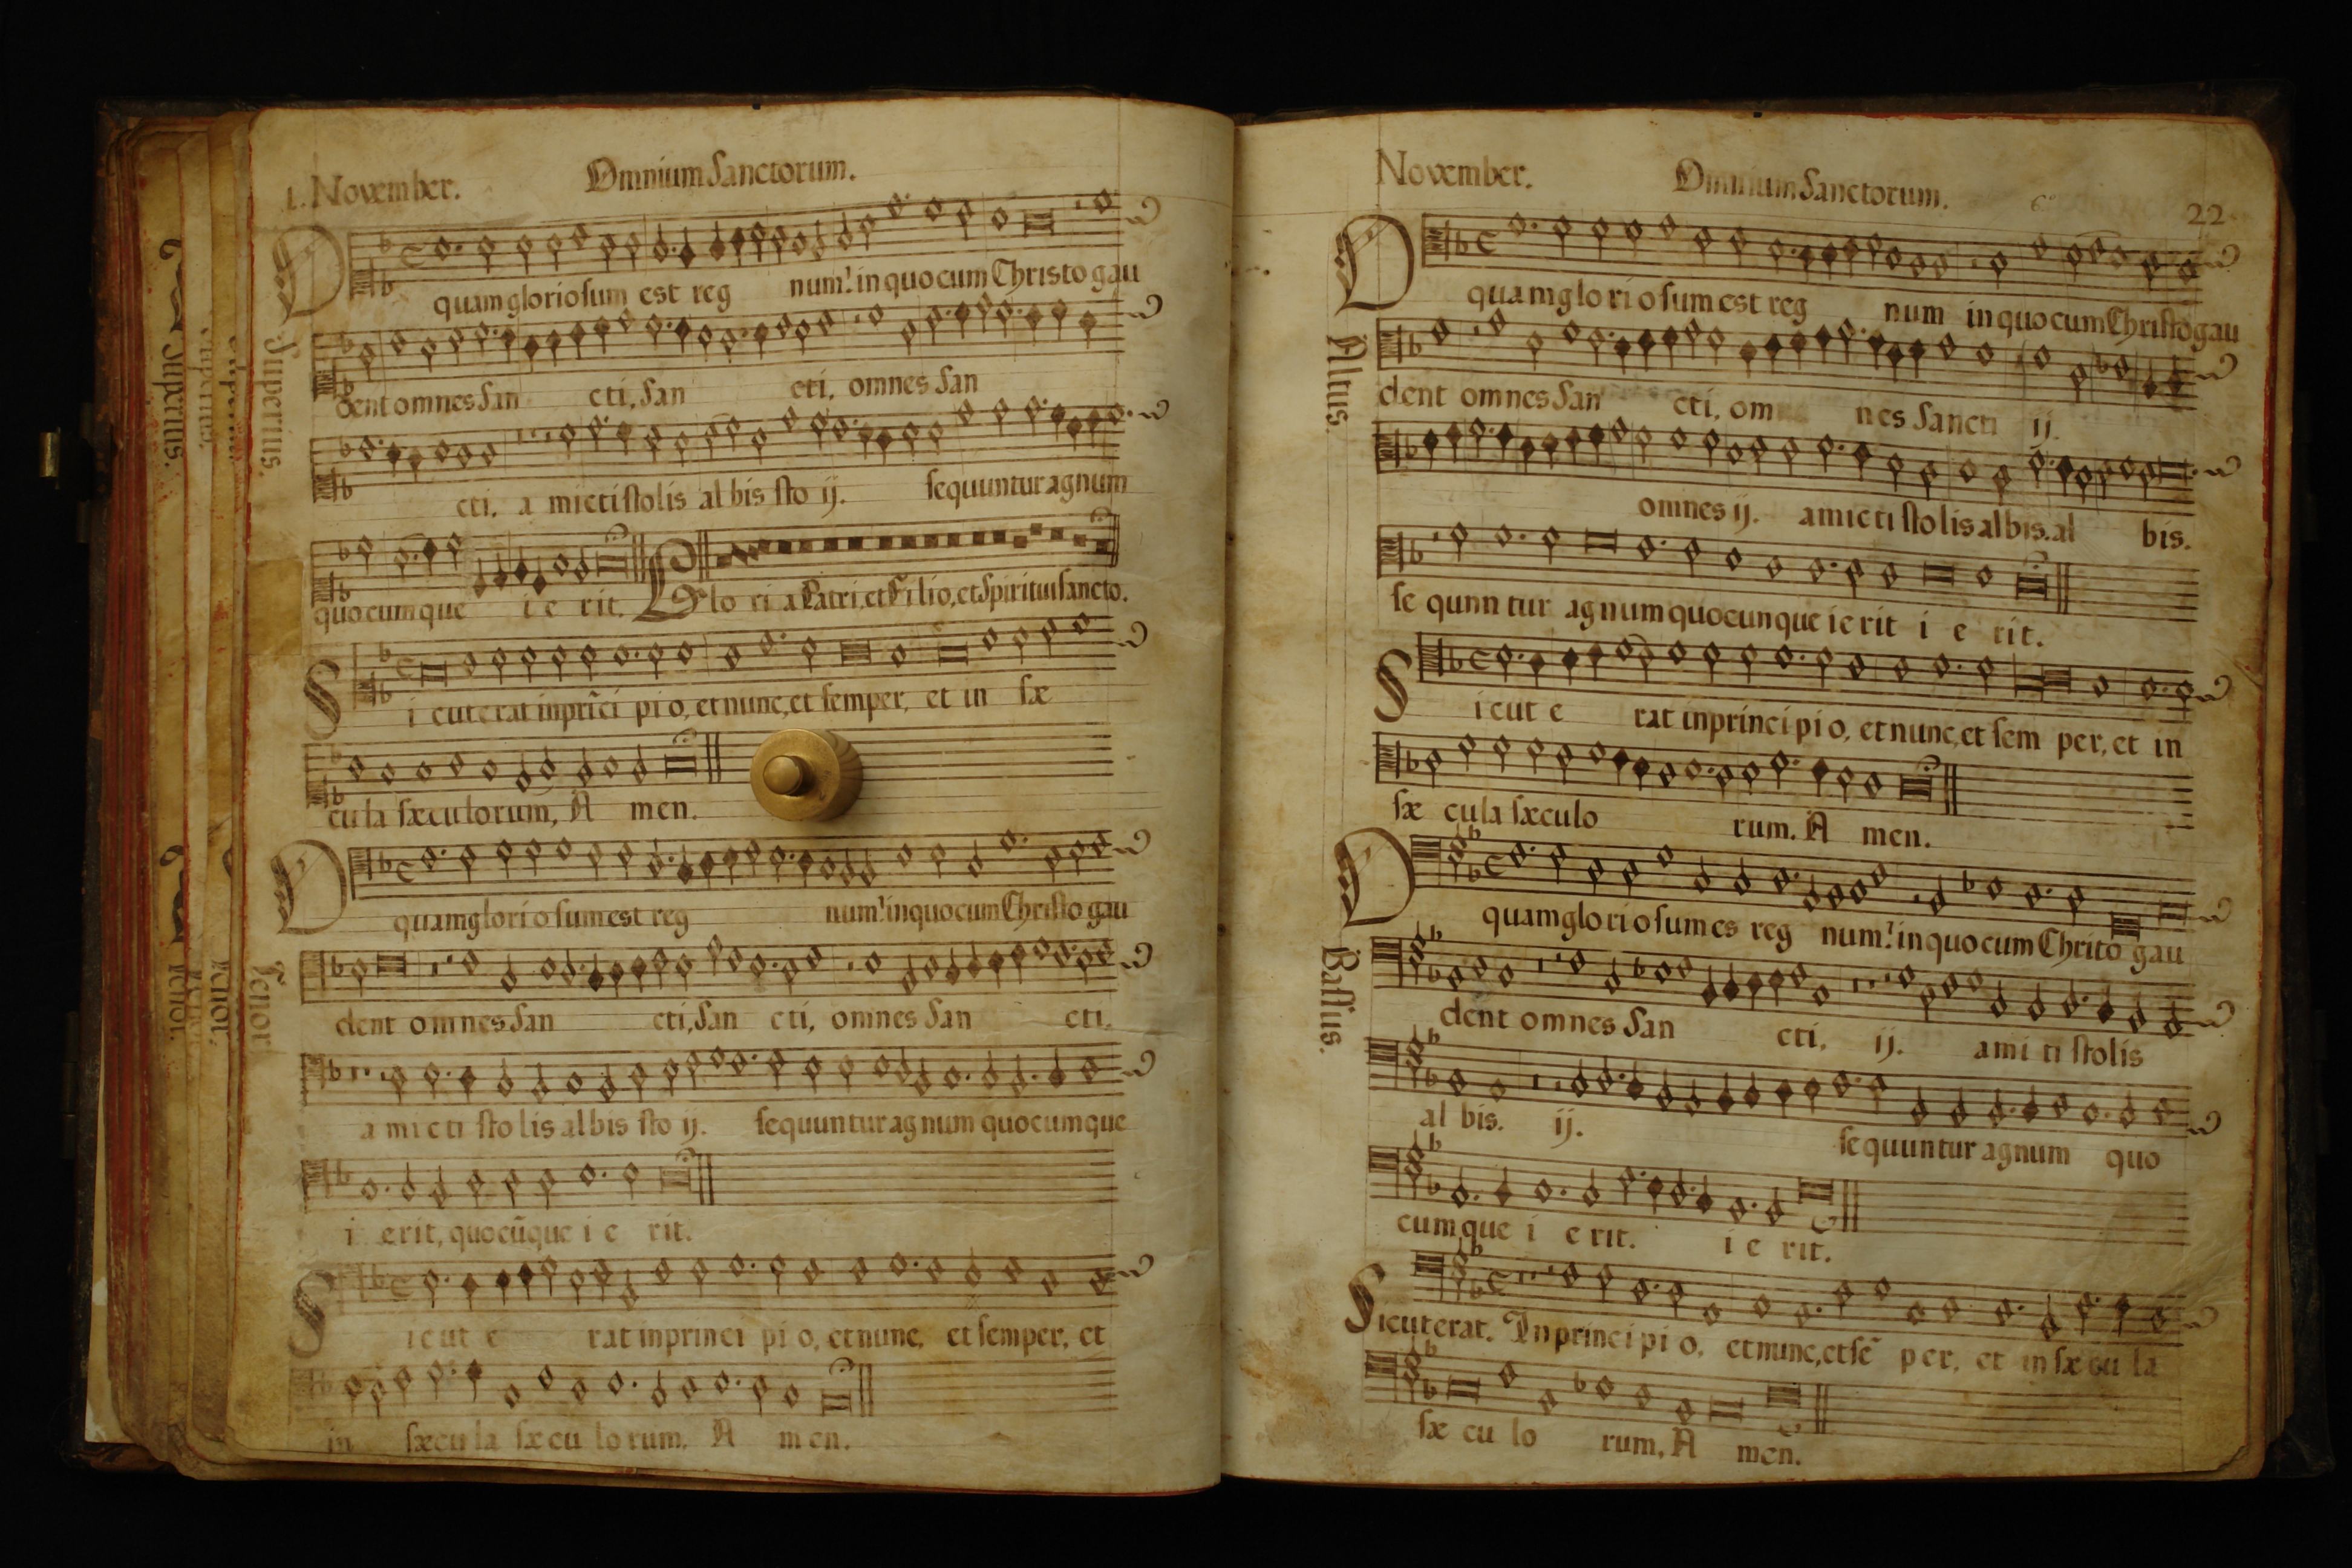 1. November. Omnium Sanctorum.
O quam gloriosum est reg num! in quo cum Christo gau
Superius.
dent omnes San cti, San cti, omnes San
cti. a micti stolis al bis sto ij. sequuntur agnum
quocumque i e rit. Glo ri a Patri, et Filio, et Spiritui sancto.
S i cut erat in prīci pi o, et nunc, et semper, et in sæ
cula sæculorum, A men.
O quam gloriosum est reg num! in quo cum Christo gau
Tenor
dent omnes San cti, San cti, omnes San cti.
a micti stolis albis sto ij. sequuntur agnum quocumque
i erit, quocūque i e rit.
S icut e rat in princi pi o, et nunc, et semper, et
in sæcula sæcu lo rum, A men.
Superius.
Tenor.
November. Omnium Sanctorum. 22
O quam glo rio sum est reg num in quo cum Christo gau
Altus.
dent omnes San cti, om nes Sancti ij.
omnes ij. amicti sto lis albis. al bis.
se qunn tur agnum quocunque ie rit i e rit.
S icut e rat in princi pi o, et nunc, et sem per, et in
sæ cula sæculo rum. A men.
O quam glo rio sum es reg num! in quo cum Chrito gau
Bassus.
dent omnes San cti, ij. ami ti stolis
al bis. ij. sequuntur agnum quo
cumque i e rit. i e rit.
Sicut erat. In princi pi o, et nunc, et sē per, et in sæ cu la
sæ cu lo rum, A men.